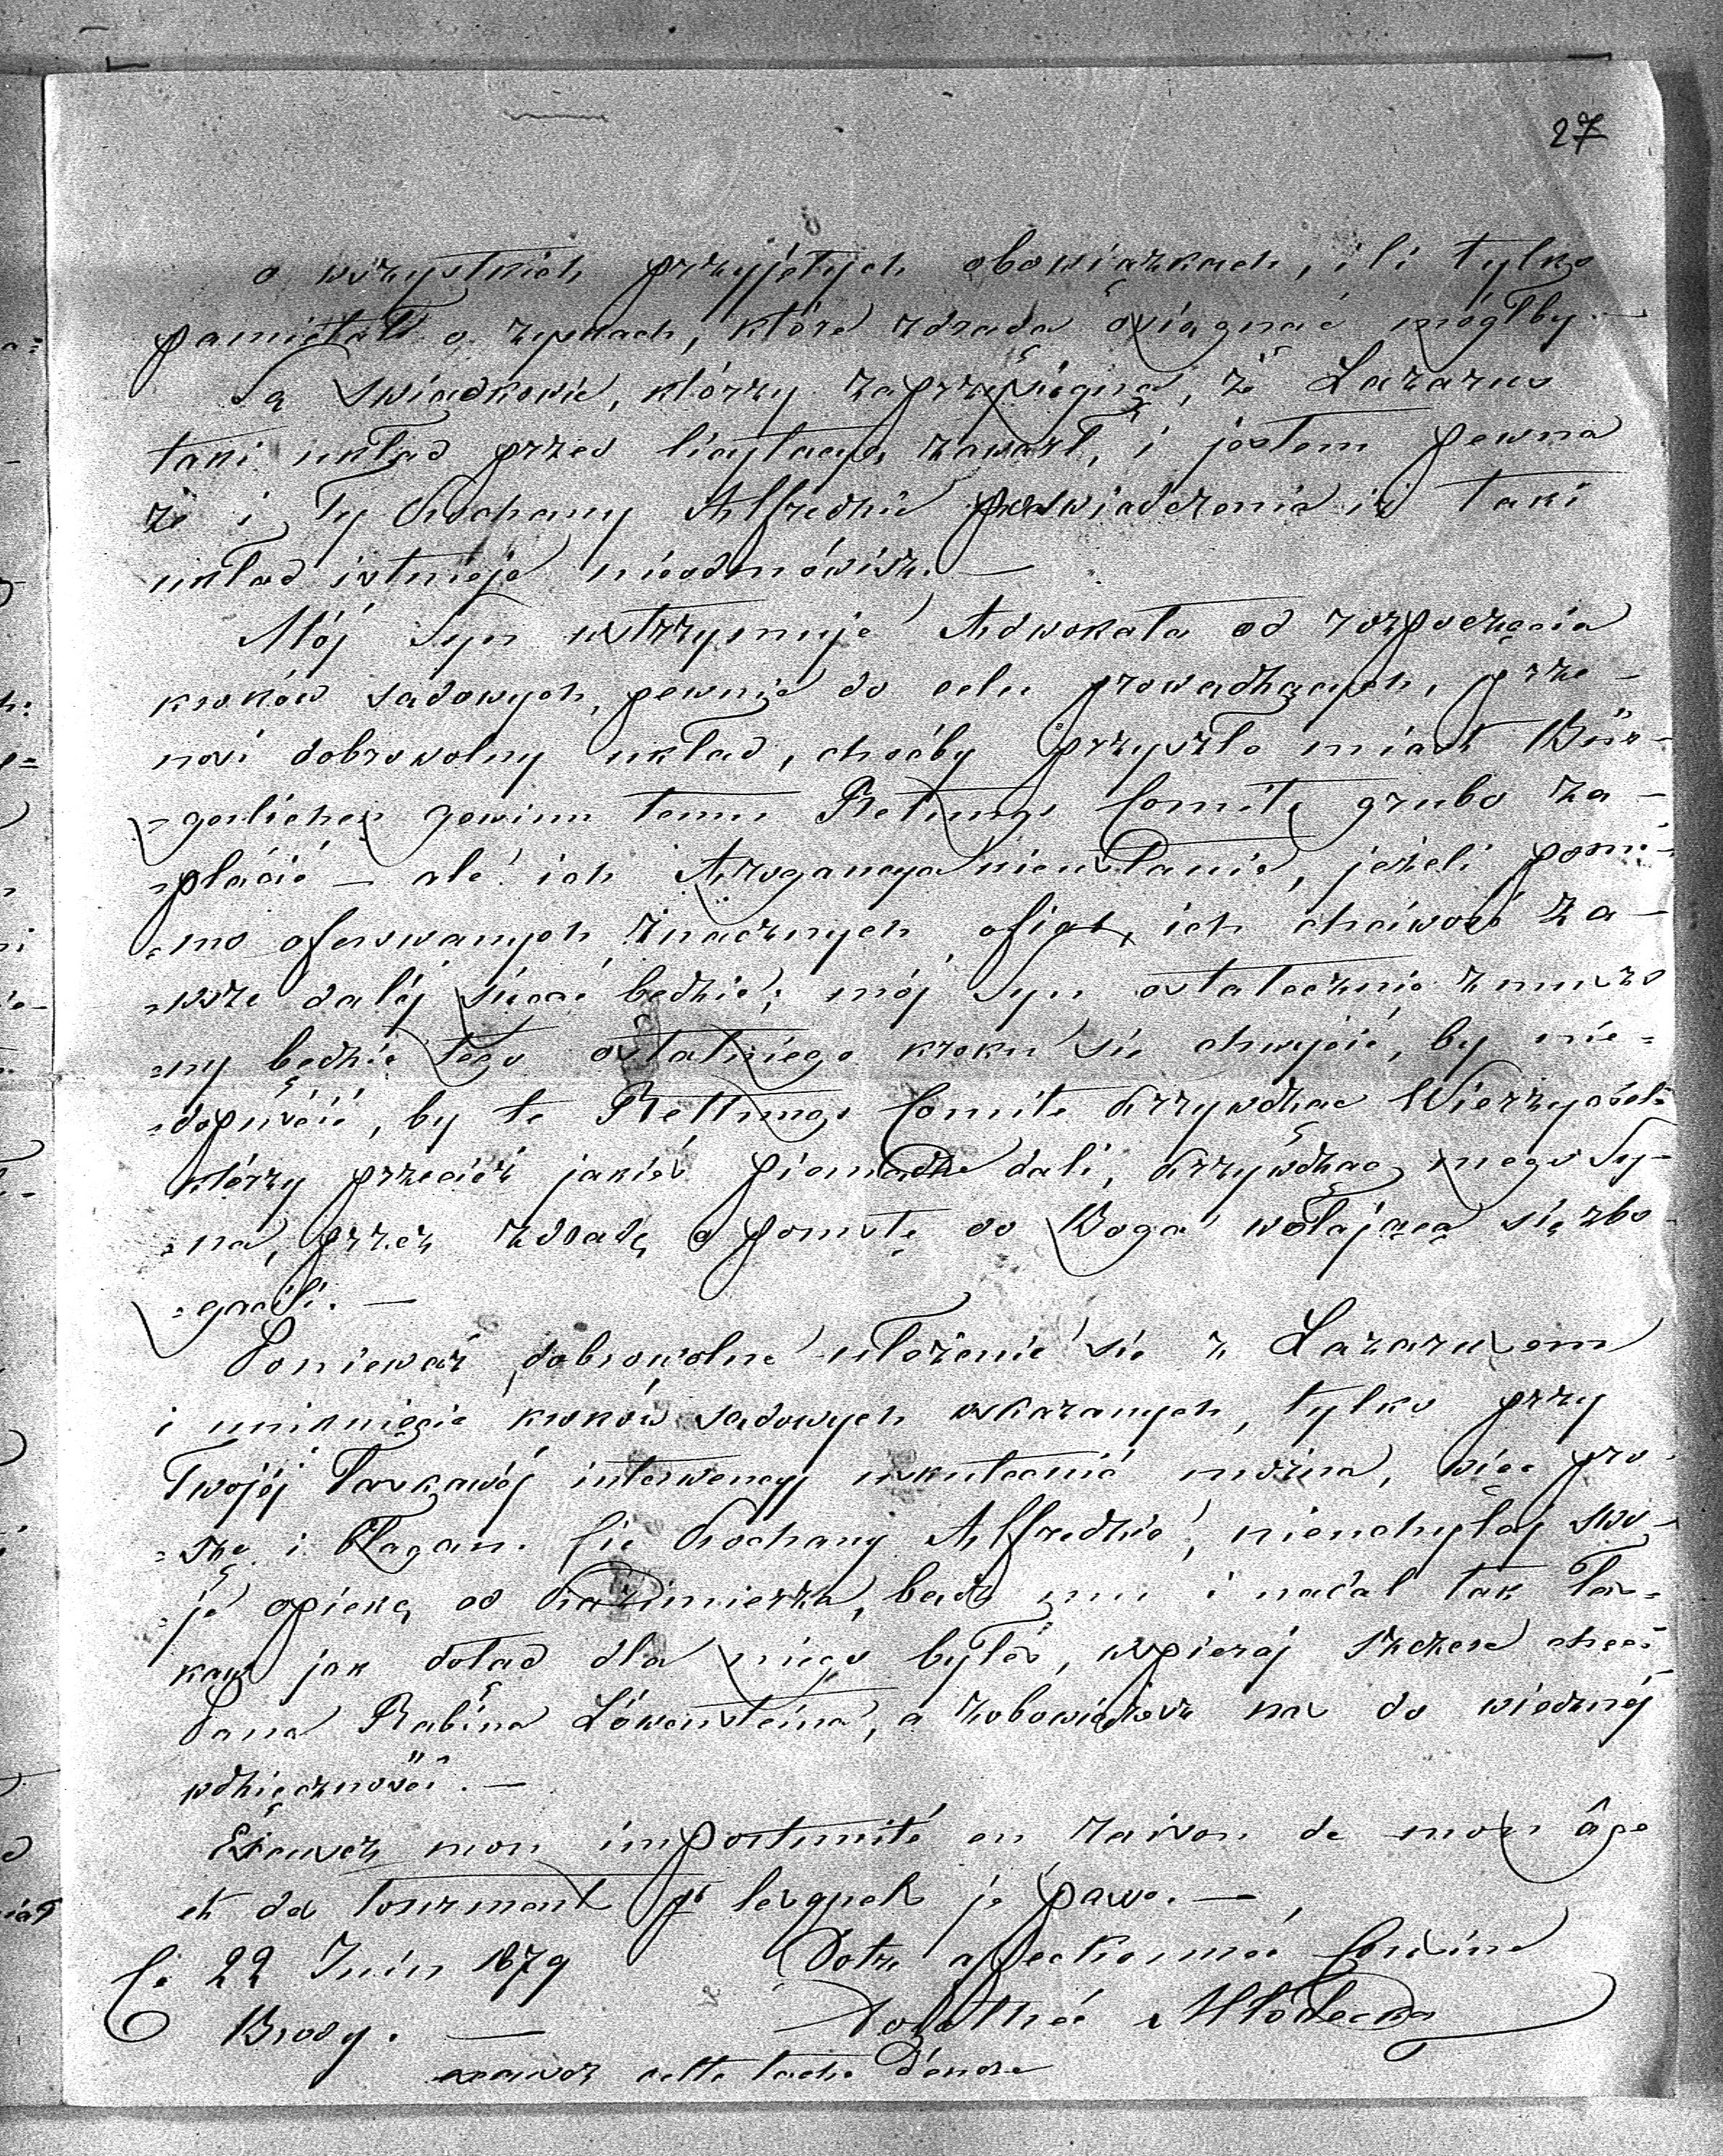 27
o wszystkich przyjętych obowiązkach, i li tylko
pamiętał o zyskach, które zdradą osiągnąć mógłby. —
Są swiadkowie, którzy zaprzysięgną, że Lazarus
taki układ przed licytacyą zawarł, i jestem pewna
że i Ty Kochany Alfredzie poswiadczenia iż taki
układ istnieje nieodmówisz. —
Mój Syn wstrzymuje Adwokata od rozpoczęcia
kroków sądowych, pewnie do celu prowadzących, prze-
nosi dobrowolny układ, choćby przyszło miast Bür-
=gerlichen gewinn temu Rettungs Comite grubo za-
=płacić — ale ich Arogancya nieustanie, jeżeli pomi-
=mo oferowanych znacznych ofiar, ich chciwość za-
=wsze daléj sięgać będzie; mój Syn ostatecznie zmuszo
=ny będzie tego ostatniego kroku się chwycić, by nie=
=dopuścić, by te Rettungs Comite krzywdząc Wierzycieli
którzy przecież jakieś pieniądze dali, krzywdząc mego Sy-
=na, przez zdradę o pomstę do Boga wołającą się zbo
=gacili. —
Ponieważ dobrowolne ułożenie się z Lazarusem
i uniknięcie kroków sądowych wskazanych, tylko przy
Twojéj łaskawéj interwencyj uskutecznić można, więc pro-
=szę i błagam Cię Kochany Alfredzie, nieuchylaj swo-
=je opiekę od Kazimierza, bądź mu i nadal tak łas=
kaw jak dotąd dla niego byłeś, wspieraj szczere chęci
Pana Rabina Löwensteina, a zobowiążesz nas do wiecznéj
wdzięczności. —
Excusez mon importunité en raison de mon âge
et des tourments lesquels je passe. —
Ce 22 Juin 1879 Votre affectionnée Cousine
Brody. — Dorothée Młodecka
excusez cette tache d'encre